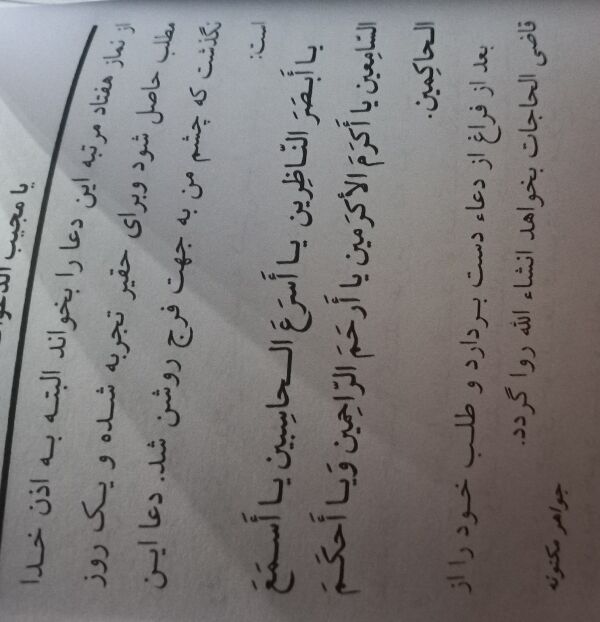 یا مجیب
از نماز هفتاد مرتبه این دعا را بخواند البته به اذن خدا
مطلب حاصل شود وبرای حقیر تجربه شده و یک روز
نگذشت که چشم من به جهت فرج روشن شد. دعا این
است:
یا أَبصَرَ النّاظِرین یا أَسرَعَ الحاسِبین یا أَسمَعَ
السّامِعین یا أَکرَمَ الأکرَمین یا أَرحَمَ الرّاحِمین وَیا أَحکَمَ
الحاکِمین.
بعد از فراغ از دعاء دست بردارد و طلب خود را از
قاضی الحاجات بخواهد انشاء الله روا گردد.
جواهر مکنونه